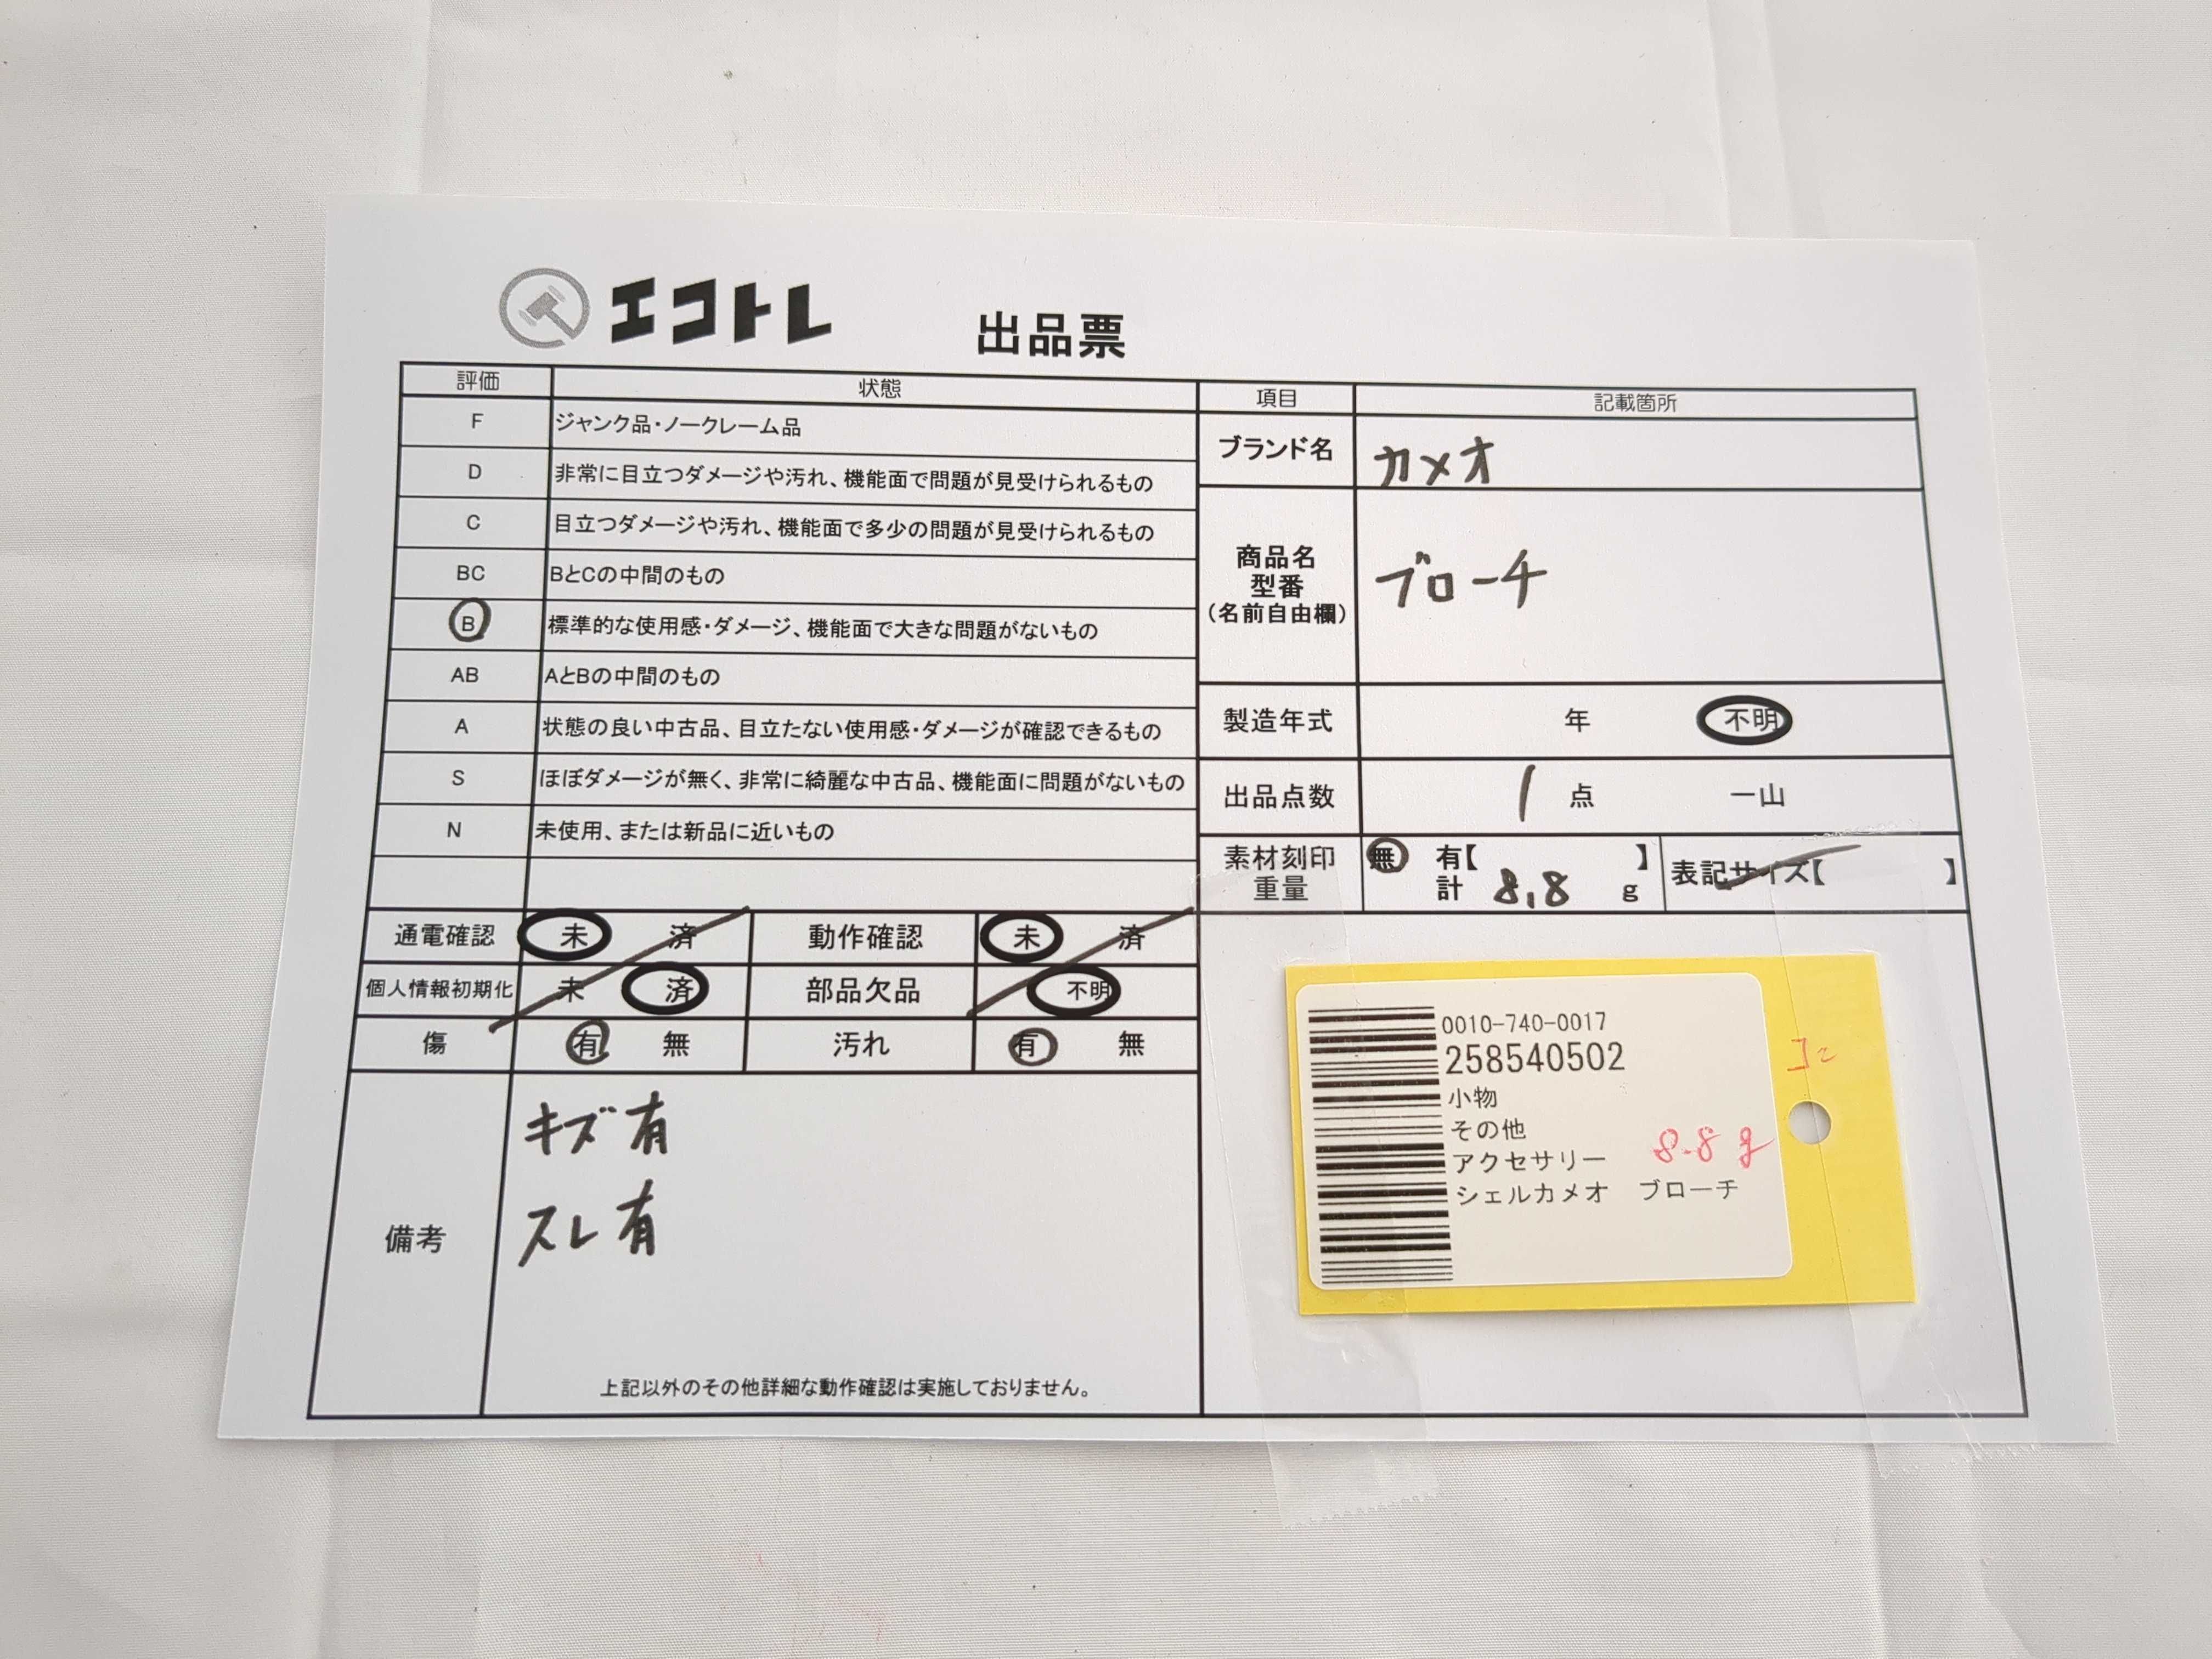 エコトレ 出品票
評価 状態
F ジャンク品・ノークレーム品
D 非常に目立つダメージや汚れ、機能面で問題が見受けられるもの
C 目立つダメージや汚れ、機能面で多少の問題が見受けられるもの
BC BとCの中間のもの
B 標準的な使用感・ダメージ、機能面で大きな問題がないもの
AB AとBの中間のもの
A 状態の良い中古品、目立たない使用感・ダメージが確認できるもの
S ほぼダメージが無く、非常に綺麗な中古品、機能面に問題がないもの
N 未使用、または新品に近いもの
通電確認 未 済 動作確認 未 済
個人情報初期化 未 済 部品欠品 不明
傷 有 無 汚れ 有 無
備考
キズ有
スレ有
上記以外のその他詳細な動作確認は実施しておりません。
項目 記載箇所
ブランド名 カメオ
商品名
型番
(名前自由欄)
ブローチ
製造年式 年 不明
出品点数 1 点 一山
素材刻印 無 有【 】
重量 計 8.8 g
表記サイズ【 】
0010-740-0017
258540502
小物
その他
アクセサリー 8.8g
シェルカメオ ブローチ